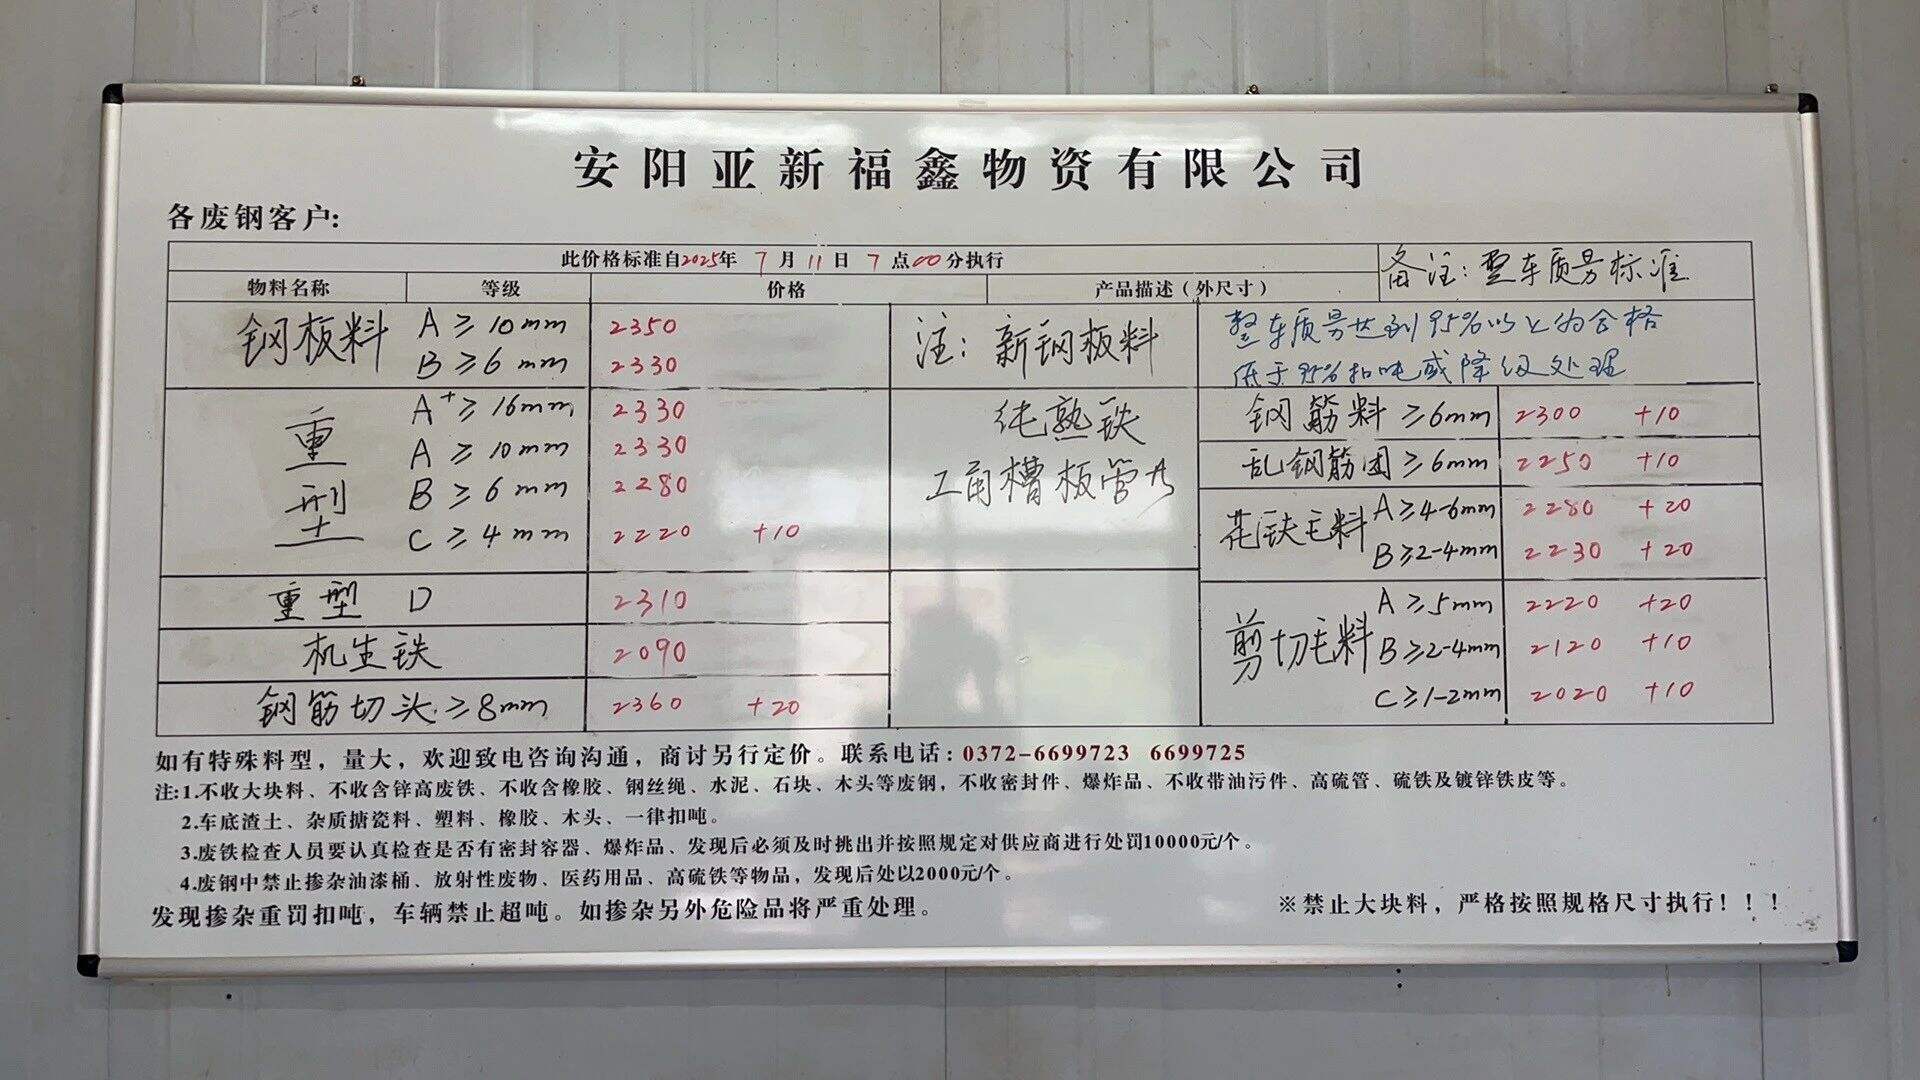 安阳亚新福鑫物资有限公司
各废钢客户:
此价格标准自2025年 7月11日 7点00分执行
备注: 整车质量标准
物料名称 等级 价格 产品描述(外尺寸)
钢板料 A ≥ 10mm 2350
B ≥ 6mm 2330
注: 新钢板料
整车质量达到95%以上为合格
低于95%扣吨或降级处理
重型 A⁺ ≥ 16mm 2330
A ≥ 10mm 2330
B ≥ 6mm 2280
C ≥ 4mm 2220 +10
纯熟铁
工角槽板管
重型 D 2310
机生铁 2090
钢筋切头 ≥8mm 2360 +20
钢筋料 ≥6mm 2300 +10
乱钢筋团 ≥6mm 2250 +10
花铁毛料 A≥4-6mm 2280 +20
B≥2-4mm 2230 +20
剪切毛料 A ≥5mm 2220 +20
B≥2-4mm 2120 +10
C≥1-2mm 2020 +10
如有特殊料型，量大，欢迎致电咨询沟通，商讨另行定价。联系电话: 0372-6699723 6699725
注:1.不收大块料、不收含锌高废铁、不收含橡胶、钢丝绳、水泥、石块、木头等废钢，不收密封件、爆炸品、不收带油污件、高硫管、硫铁及镀锌铁皮等。
2.车底渣土、杂质搪瓷料、塑料、橡胶、木头、一律扣吨。
3.废铁检查人员要认真检查是否有密封容器、爆炸品、发现后必须及时挑出并按照规定对供应商进行处罚10000元/个。
4.废钢中禁止掺杂油漆桶、放射性废物、医药用品、高硫铁等物品，发现后处以2000元/个。
发现掺杂重罚扣吨，车辆禁止超吨。如掺杂另外危险品将严重处理。
※禁止大块料，严格按照规格尺寸执行！！！